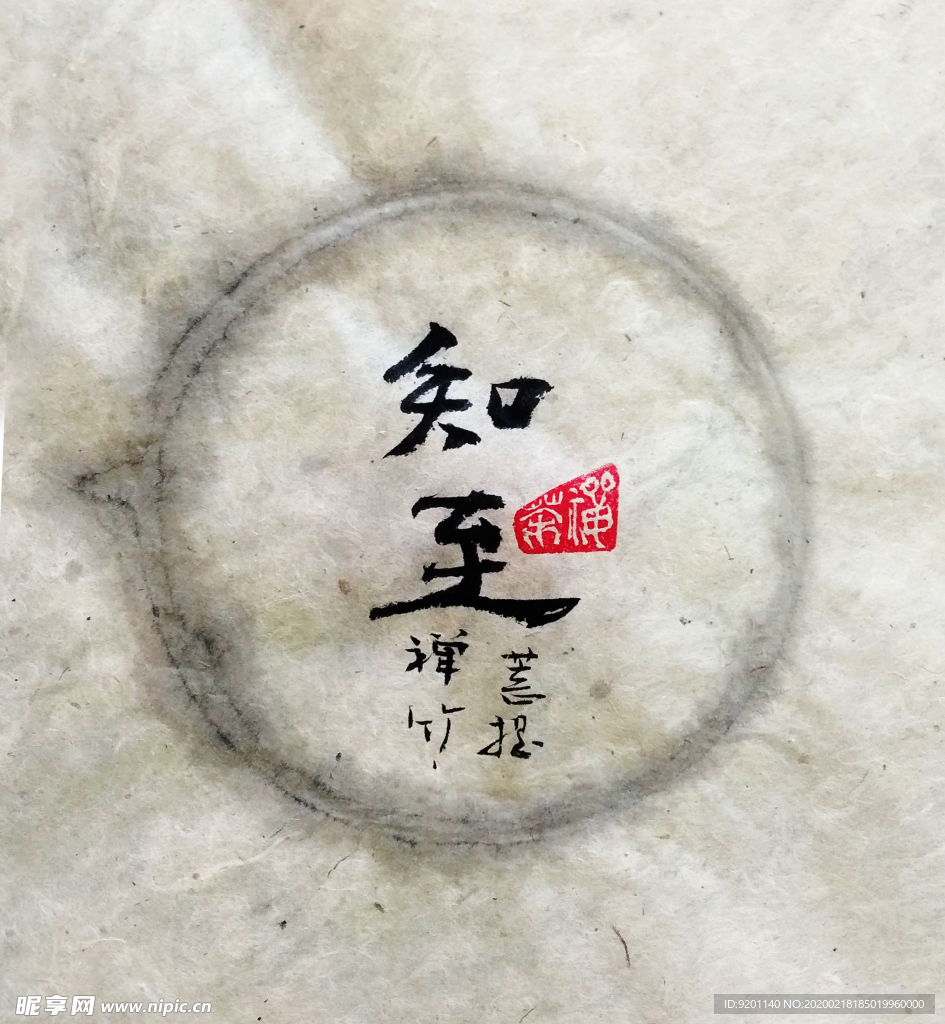 知
至
禅茶
菩提
禅竹
昵享网 www.nipic.cn
ID:9201140 NO:20200218185019960000